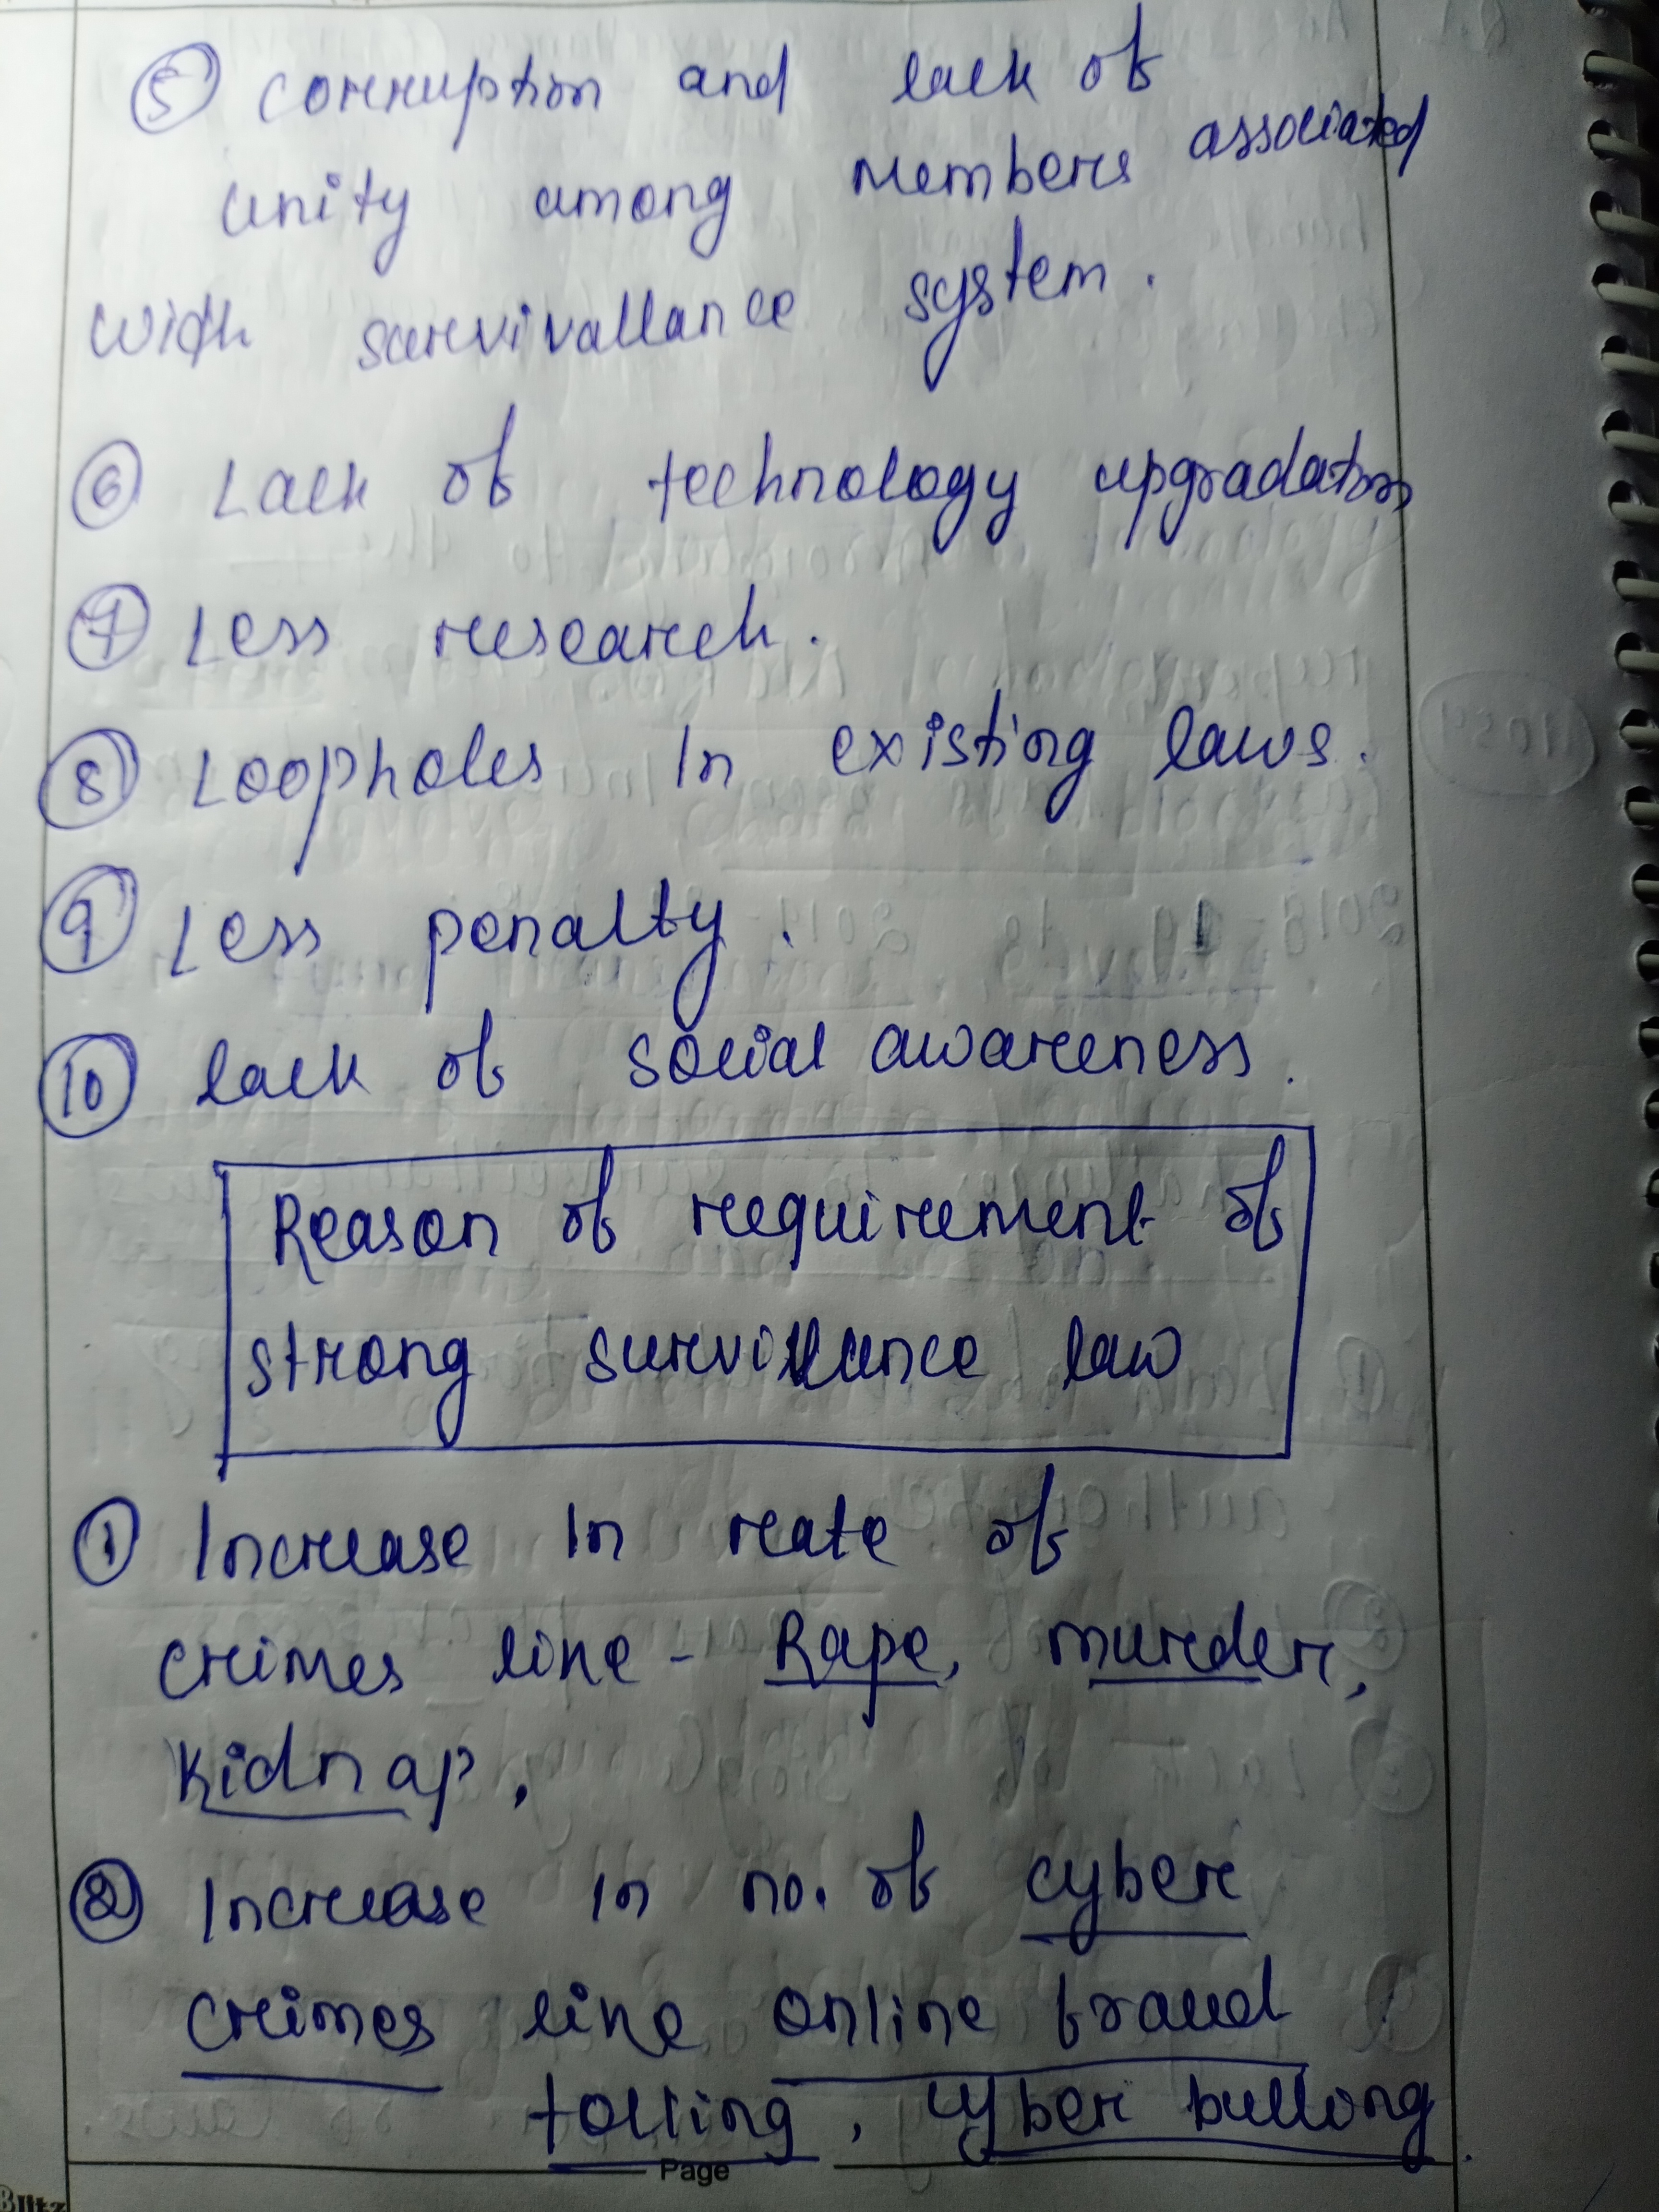 ⑤ corruption and lack of
unity among members associated
with survivallance system.
⑥ Lack of technology upgradation
⑦ Less research.
⑧ Loopholes In existing laws.
⑨ Less penalty.
⑩ lack of social awareness.
Reason of requirement of
strong survillance law
① Increase In rate of
crimes like - Rape, murder,
Kidnap,
② Increase in no. of cyber
crimes like online fraud
tolling, cyber bullong.
Page
Blitz